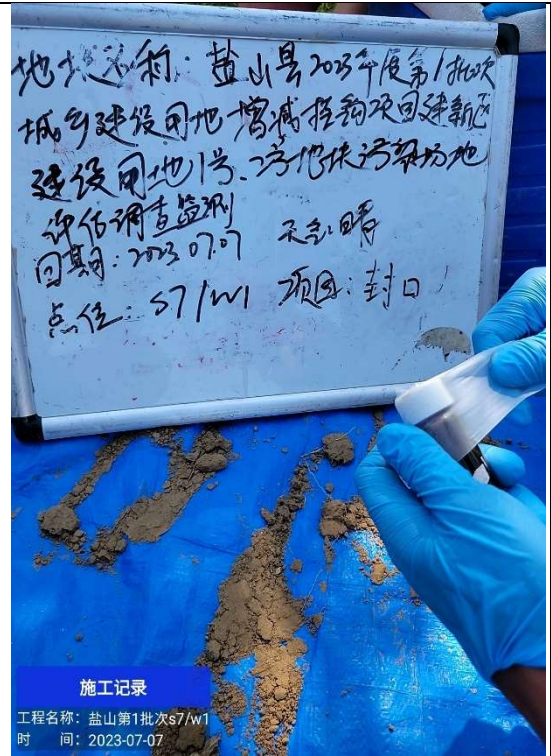 地块名称：盐山县2023年度第1批次
城乡建设用地增减挂钩项目建新区
建设用地1号、2号地块污染场地
评估调查监测
日期：2023 07.07 天气：晴
点位：S7/W1 项目：封口
施工记录
工程名称：盐山第1批次s7/w1
时 间：2023-07-07